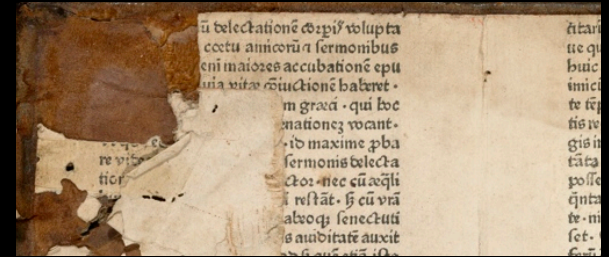 ū delectationē corpis volupta
coetu amicorū ⁊ sermonibus
enī maiores accubationē epu
uia vitæ cōiūctionē haberet ·
m græci · qui hoc
nationeʒ vocant ·
· id maxime ꝓba
sermonis delecta
ctor · nec cū æq̄li
ī restāt · ꝫ cū vrā
abeoqꝫ senectuti
s auiditatē auxit
d si quē etiā ista
re
tior
citari
ue qu
huic
inici
te tēp
tis re
gis in
tāta
posse
q̄nta
te · ni
set ·